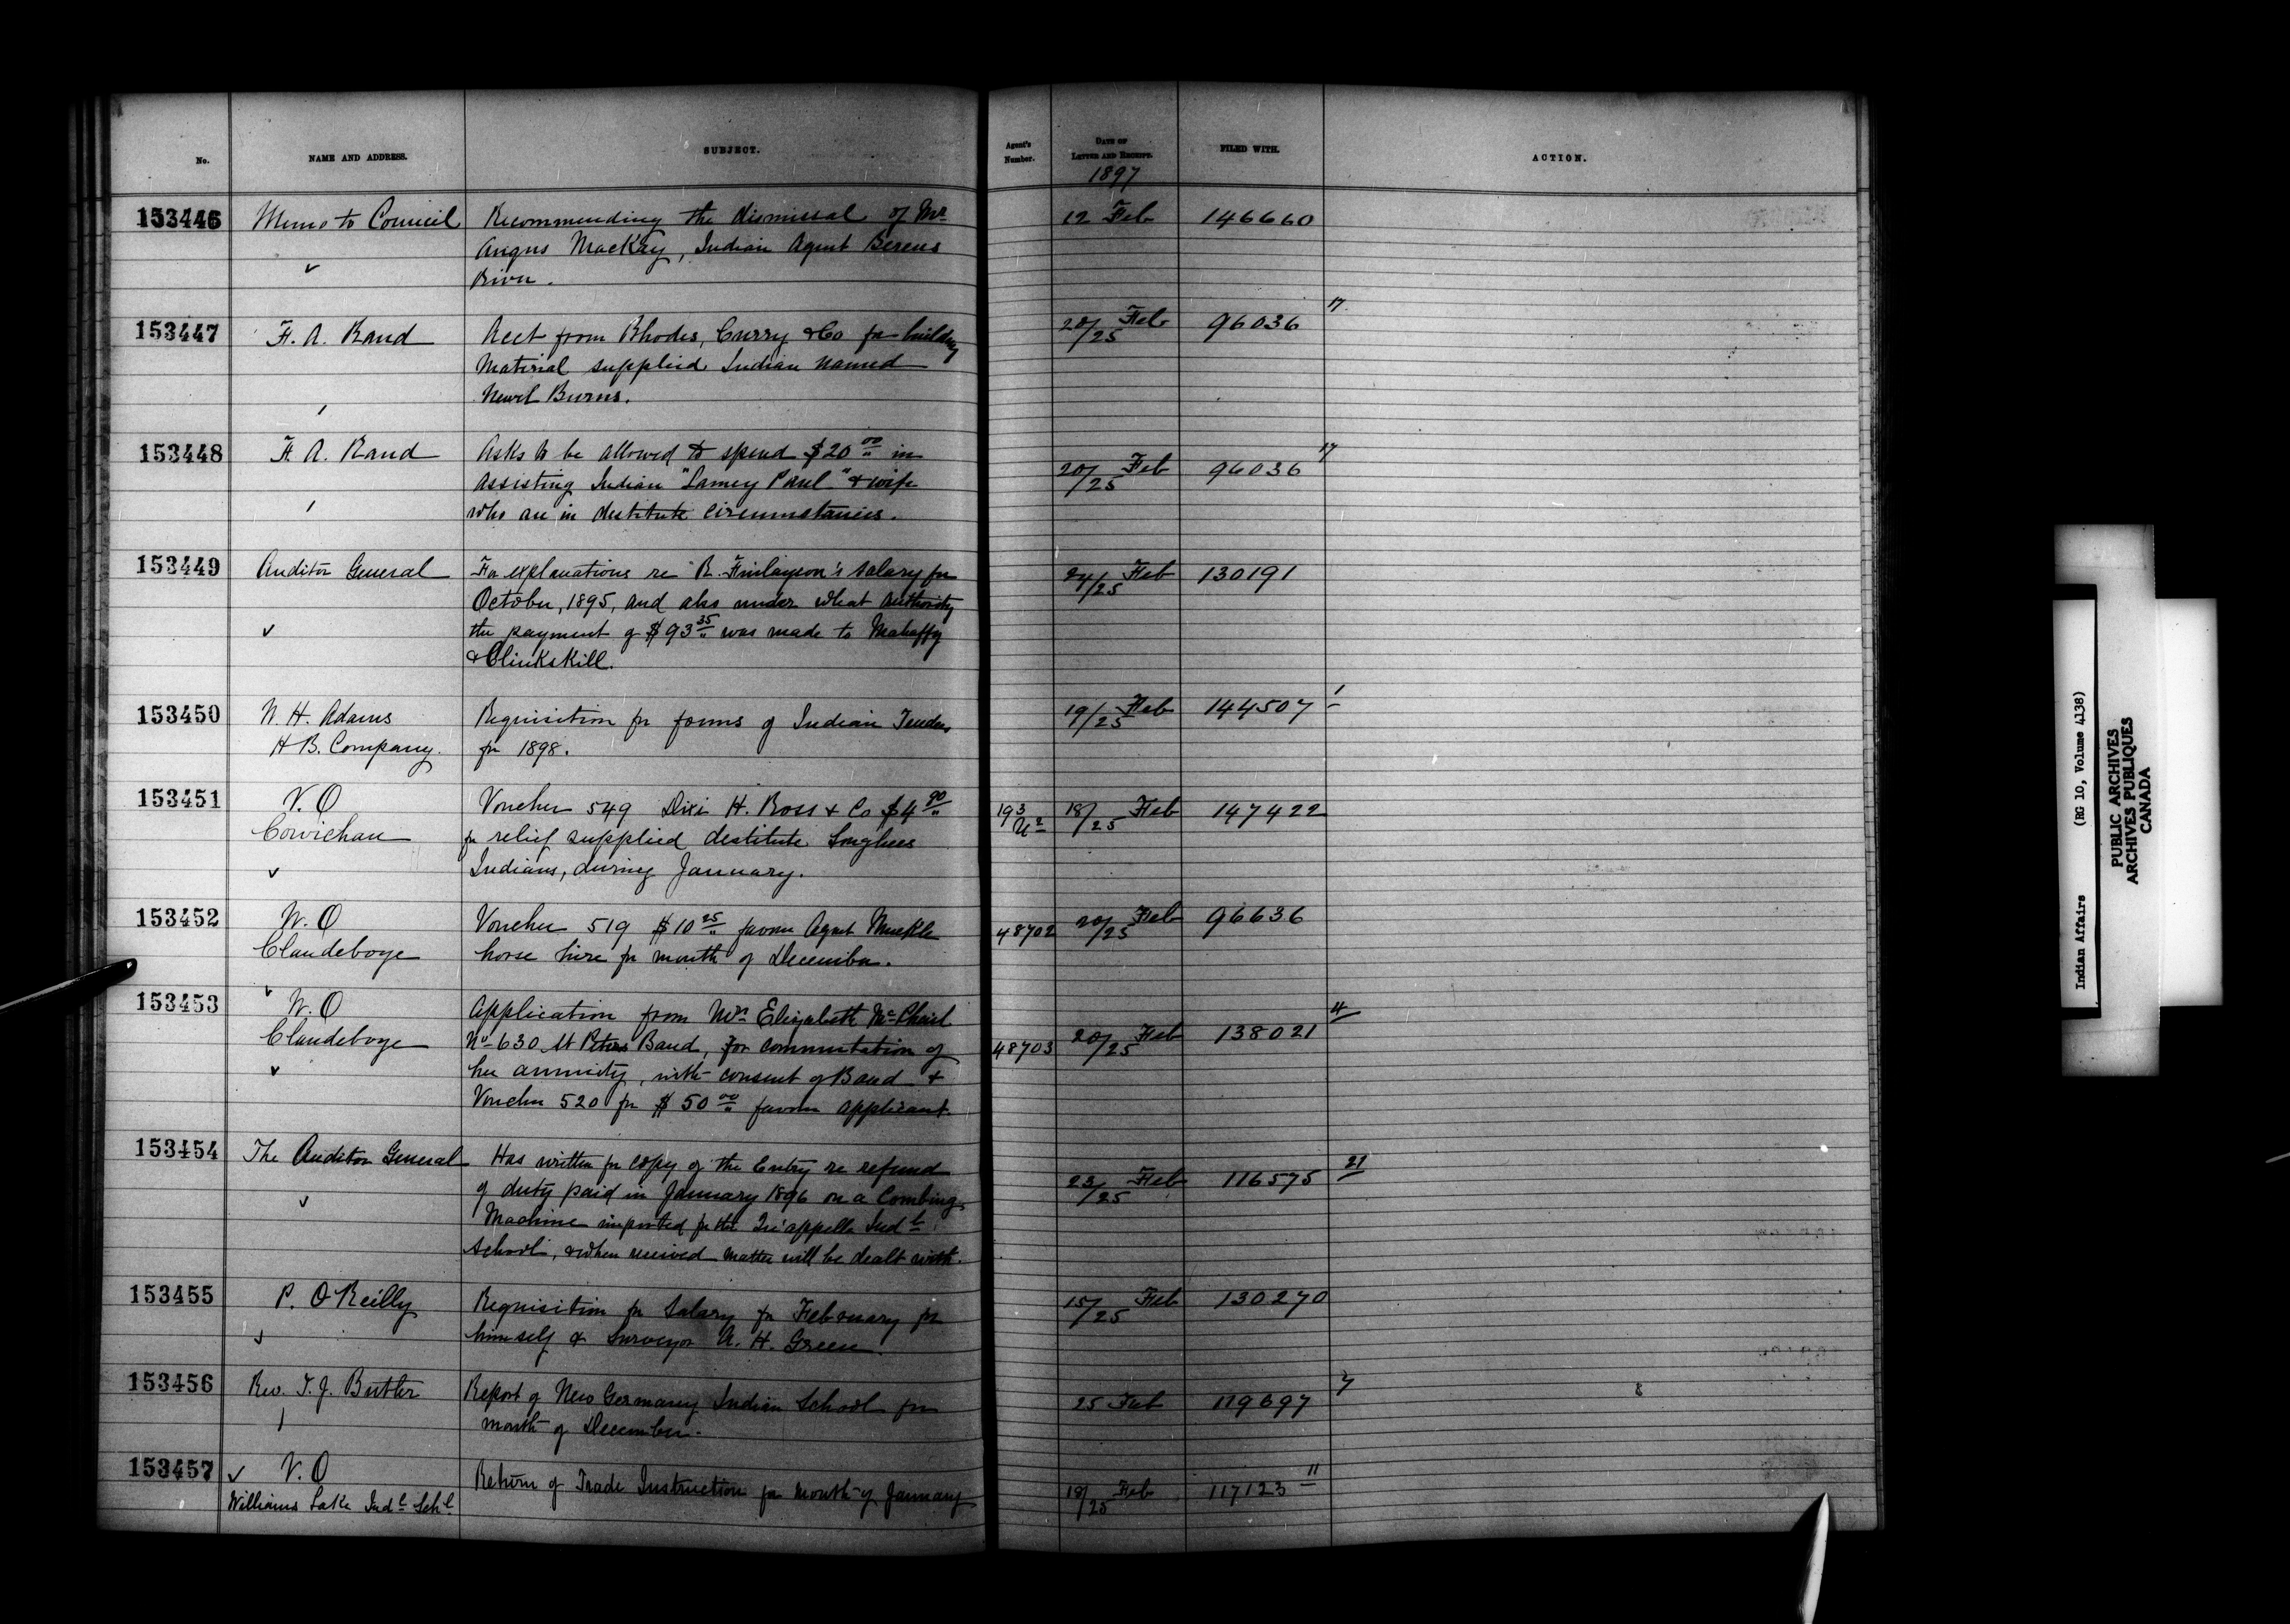 No.
NAME AND ADDRESS.
SUBJECT.
Agent's Number.
DATE OF LETTER AND RECEIPT.
1897
FILED WITH.
ACTION.
153446
Memo to Council
Recommending the dismissal of Mr
Angus MacKay, Indian Agent Berens
River.
12 Feb
146660
153447
F. A. Rand
Acct from Rhodes, Curry & Co for building
Material supplied Indian named
Newel Burns.
20/25 Feb
96036
17
153448
F. A. Rand
Asks to be allowed to spend $20 00 in
assisting Indian "Lamey Paul" & wife
who are in destitute circumstances.
20/25 Feb
96036
17
153449
Auditor General
For explanations re R. Finlayson's salary for
October, 1895, and also under what authority
the payment of $93 35 was made to Mahaffy
& Clinkskill.
24/25 Feb
130191
153450
W. H. Adams
H B. Company.
Requisition for forms of Indian Tenders
for 1898.
19/25 Feb
144507
1
153451
V. O
Cowichan
Voucher 549 Dixi H. Ross & Co $4 90
for relief supplied destitute Songhees
Indians, during January.
193
18/25 Feb
147422
153452
W. O
Clandeboye
Voucher 519 $10 25 favour Agent Muckle
horse hire for month of December.
48702
20/25 Feb
96636
153453
W. O
Clandeboye
Application from Mrs Elizabeth McPhail
No 630 St Peters Band, for commutation of
her annuity, with consent of Band &
Voucher 520 for $50 00 favour applicant.
48703
20/25 Feb
138021
4
153454
The Auditor General
Has written for copy of the Entry re refund
of duty paid in January 1896 on a Combing
Machine imported for the Qu'appelle Indl
School, & when received matter will be dealt with.
23/25 Feb
116575
21
153455
P. O'Reilly
Requisition for Salary for February for
himself & Surveyor A. H. Green
15/25 Feb
130270
153456
Rev. T. J. Butler
Report of New Germany Indian School for
month of December.
25 Feb
119697
7
153457
V. O
Williams Lake Indl Schl
Return of Trade Instruction for Month of January
18/25 Feb
117123
11
Indian Affairs (RG 10, Volume 4138)
PUBLIC ARCHIVES
ARCHIVES PUBLIQUES
CANADA